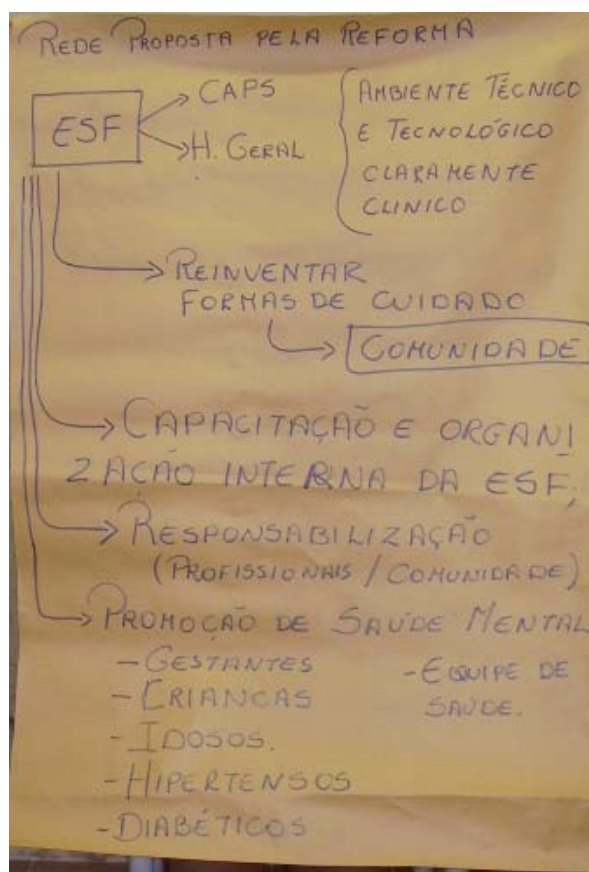 REDE PROPOSTA PELA REFORMA
ESF
CAPS
H. GERAL
AMBIENTE TÉCNICO
E TECNOLÓGICO
CLARAMENTE
CLINICO
REINVENTAR
FORMAS DE CUIDADO
COMUNIDADE
CAPACITAÇÃO E ORGANI
ZAÇÃO INTERNA DA ESF;
RESPONSABILIZAÇÃO
(PROFISSIONAIS / COMUNIDADE)
PROMOÇÃO DE SAÚDE MENTAL
- GESTANTES
- CRIANCAS
- IDOSOS.
- HIPERTENSOS
- DIABÉTICOS
- EQUIPE DE
SAÚDE.